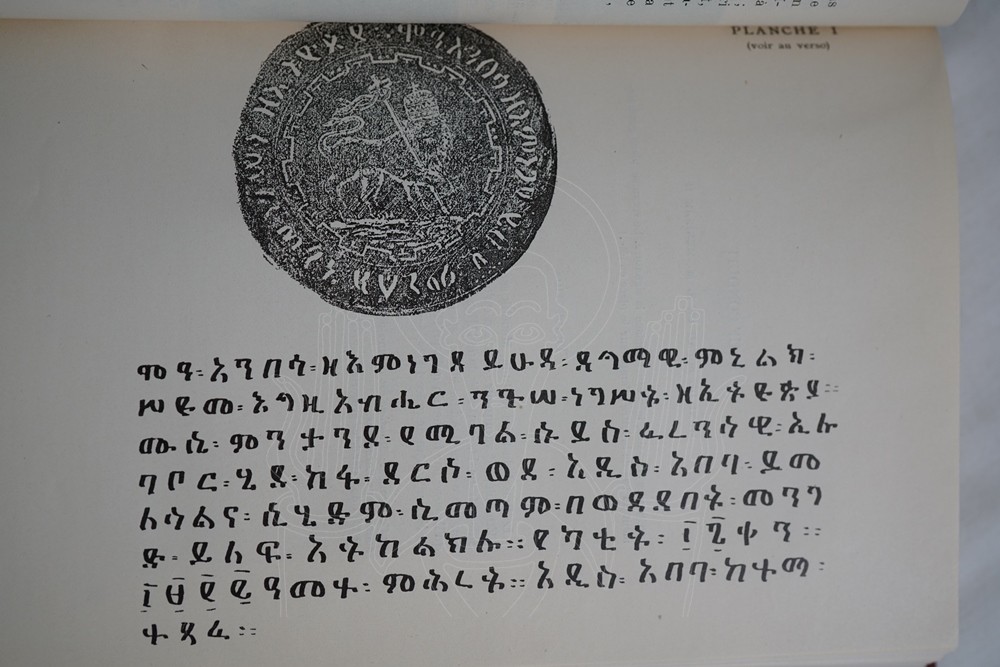 PLANCHE I
(voir au verso)
ሞዓ፡አንበሳ፡ዘእምነገደ ይሁዳ፡ዳግማዊ፡ምኒልክ፡
ሥዩመ፡እግዚአብሔር፡ንጉሠ፡ነገሥት፡ዘኢትዮጵያ፡፡
ሙሴ፡ምንታንዶ፡የሚባል፡ሱይስ፡ፈረንሳዊ፡ኢሉ
ባቦር፡ሂዶ፡ከፋ፡ደርሶ፡ወደ፡አዲስ፡አበባ፡ይመ
ለሳልና፡ሲሂድም፡ሲመጣም፡በወደደበት፡መንገ
ድ፡ይለፍ፡አትከልክሉ፡፡የካቲት፡፲፯ ቀን፡፡
፲፱፻፪ ዓመተ፡ምሕረት፡፡አዲስ፡አበባ፡ከተማ፡
ተጻፈ፡፡